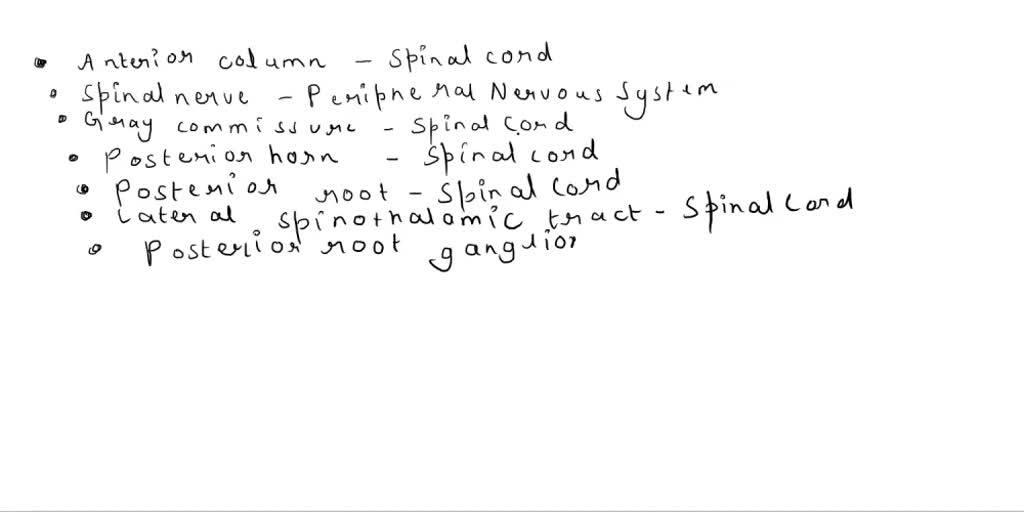 • Anterior column - Spinal cord
• Spinal nerve - Peripheral Nervous System
• Gray commissure - Spinal Cord
• Posterior horn - Spinal cord
• Posterior root - Spinal Cord
• Lateral spinothalamic tract - Spinal Cord
• Posterior root ganglion